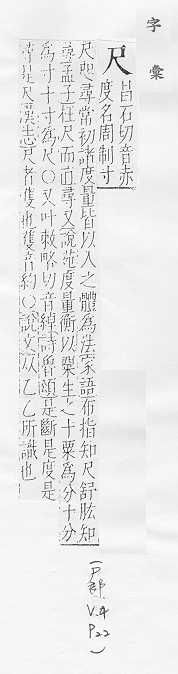 字彙
尺
昌石切音赤
度名周制寸
尺咫尋常仞諸度量皆以人之體為法家語布指知尺舒肱知
尋孟子枉尺而直尋又說苑度量衡以粟生之十粟為分十分
為寸十寸為尺〇又叶敕略切音綽詩魯頌是斷是度是
尋是尺漢志尺者蒦也蒦音約〇說文从乙乙所識也
(尸部
V.4
P22)